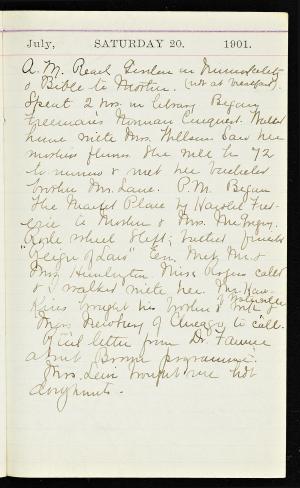 July, SATURDAY 20. 1901.
A. M. Read Gordon on Immortality
& Bible to Mother. (not at breakfast).
Spent 2 hrs. in library. Began
Freeman's Norman Conquest. Walked
home with Mrs. Willson. Saw her
mother's flowers. She will be 72
to-morrow & met her bachelor
brother Mr. Lane. P.M. Began
The Market Place by Harold Fred-
eric to Mother & Mrs. McGregory.
Rode wheel & left; finished
"Reign of Law". Eve. Metz, Mr. &
Mrs. Huntington, Miss Rogers called
& I walked with her. Mr. Haw-
kins brought his brother & wife
Mgr. Dewberry of Chicago to call.
Got letter from Dr. Faunce
about Brown programme.
Mrs. Levi brought me hot
doughnuts.